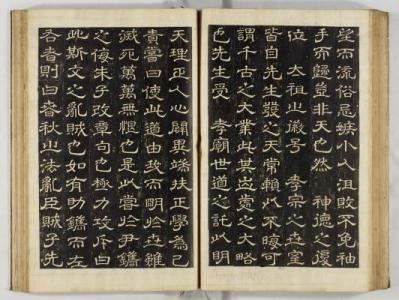 望而流俗忌嫉小人沮敗不免袖
手而歸豈非天也然 神德之復
位 太祖之徽号 孝宗之世室
皆自先生發之天常賴以不晦可
謂千古之大業此其出處之大略
也先生受 孝廟世道之託以明
天理正人心闢異端扶正學為己
責嘗曰使此道由我而明於世雖
滅死萬萬無恨也是以嘗於尹鑴
之侮朱子改章句也極力攻斥曰
此斯文之亂賊也如有助鑴而左
右者則曰春秋之法亂臣賊子先